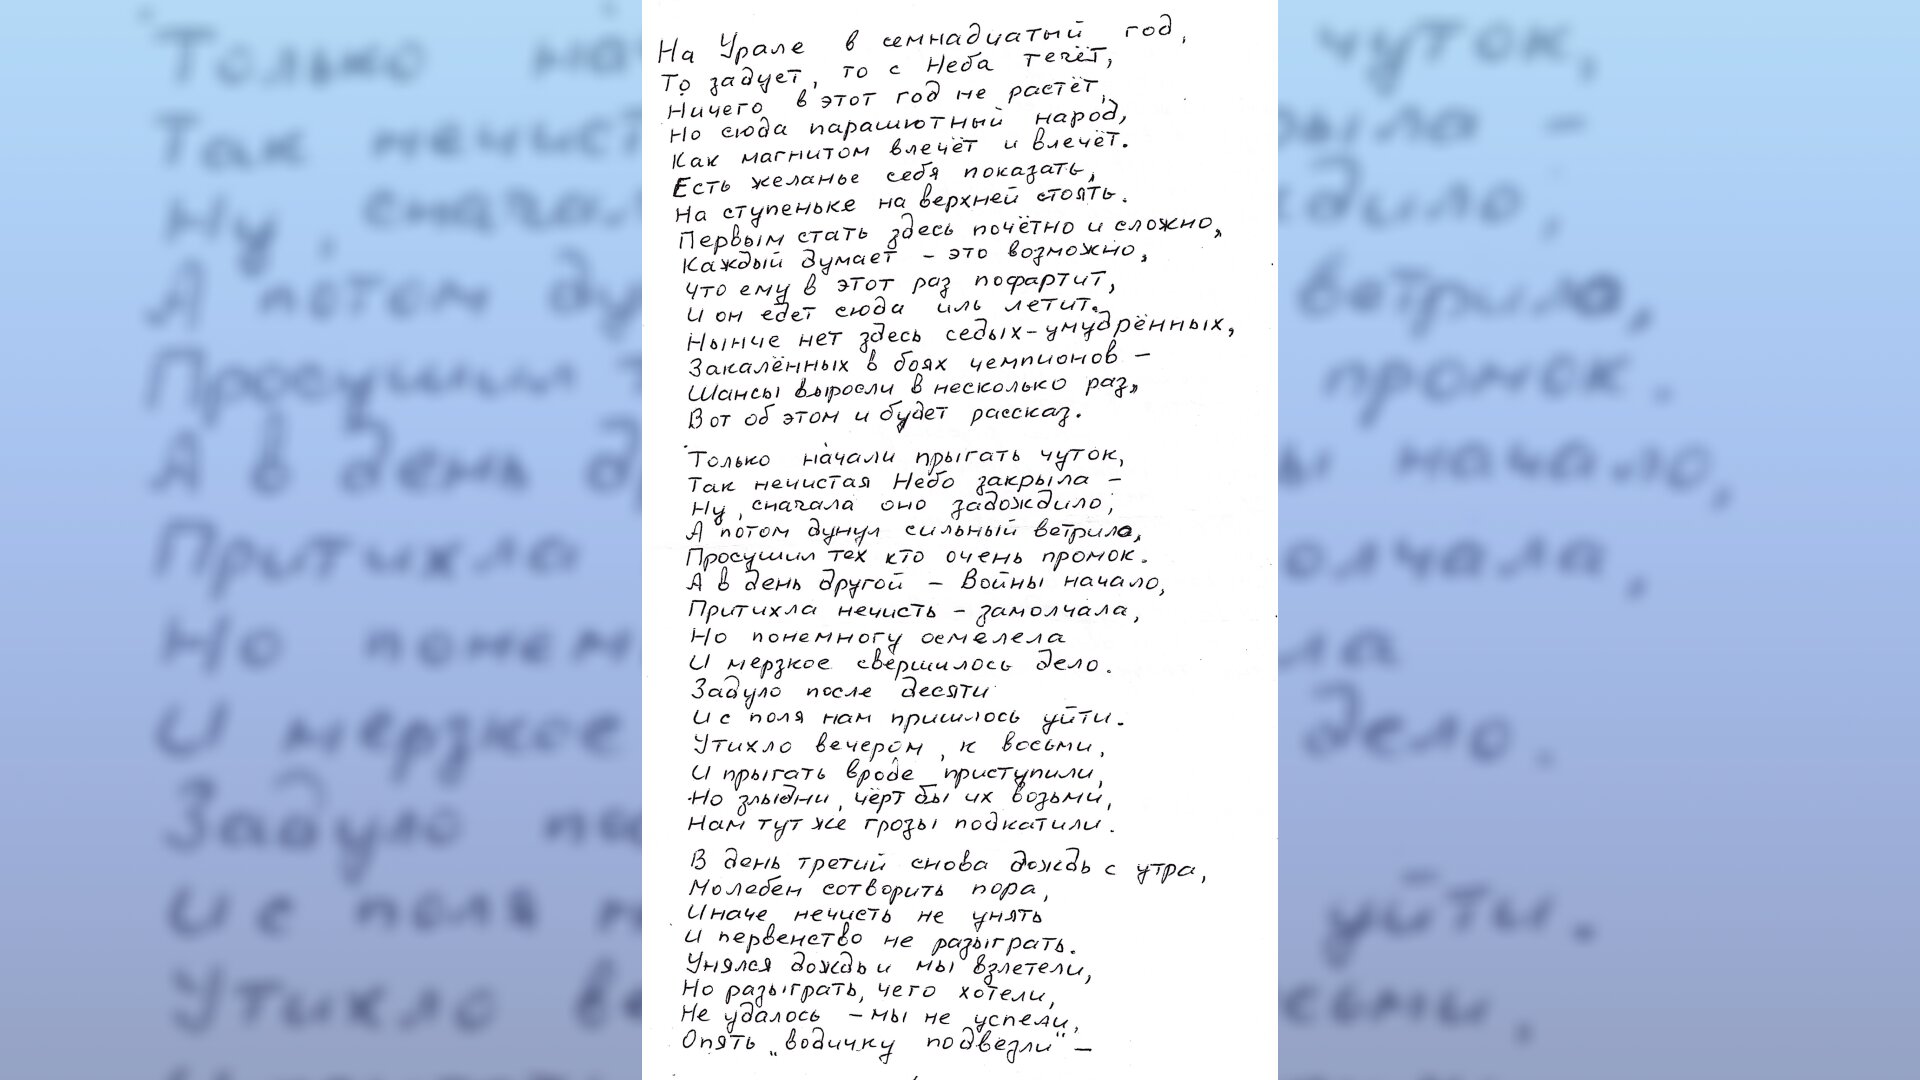 На Урале в семнадцатый год,
То задует, то с Неба течёт,
Ничего в этот год не растёт,
Но сюда парашютный народ,
Как магнитом влечёт и влечёт.
Есть желанье себя показать,
На ступеньке на верхней стоять.
Первым стать здесь почётно и сложно,
Каждый думает - это возможно,
Что ему в этот раз пофартит,
И он едет сюда иль летит.
Нынче нет здесь седых-умудрённых,
Закалённых в боях чемпионов -
Шансы выросли в несколько раз,
Вот об этом и будет рассказ.
Только начали прыгать чуток,
Так нечистая Небо закрыла -
Ну, сначала оно задождило,
А потом дунул сильный ветрило,
Просушил тех кто очень промок.
А в день другой - Войны начало,
Притихла нечисть - замолчала,
Но понемногу осмелела
И мерзкое свершилось дело.
Задуло после десяти
И с поля нам пришлось уйти.
Утихло вечером, к восьми,
И прыгать вроде приступили,
Но злыдни, чёрт бы их возьми,
Нам тут же грозы подкатили.
В день третий снова дождь с утра,
Молебен сотворить пора,
Иначе нечисть не унять
И первенство не разыграть.
Унялся дождь и мы взлетели,
Но разыграть, чего хотели,
Не удалось - мы не успели,
Опять "водичку подвезли" -